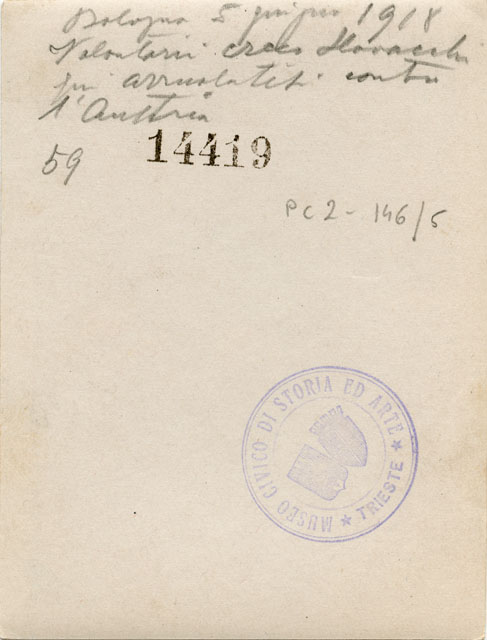 Bologna 5 giugno 1918
Volontari czeco slovacchi
qui arruolatisi contro
l'Austria
59
14419
PC2-146/5
MUSEO CIVICO DI STORIA ED ARTE
★ TRIESTE ★